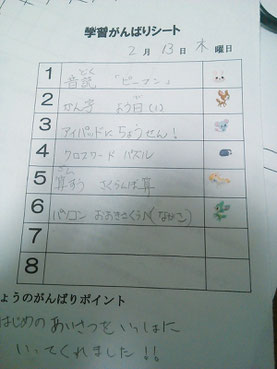 学習がんばりシート
2月13日木曜日
1 音読 どく 「ピーマン」
2 かん字 よう日(1)
3 アイパッドにちょうせん!
4 クロスワード パズル
5 算すう さん さくらんぼ算
6 パソコン おおきなこうえん
7
8
ょうのがんばりポイント
はじめのあいさつをいっしょに
いってくれました!!